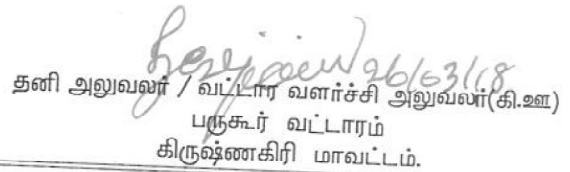 26/03/18
தனி அலுவலர் / வட்டார வளர்ச்சி அலுவலர்(கி.ஊ)
பருகூர் வட்டாரம்
கிருஷ்ணகிரி மாவட்டம்.